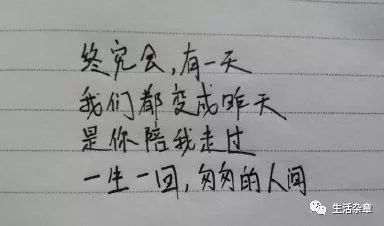 终究会,有一天
我们都变成昨天
是你陪我走过
一生一回,匆匆的人间
生活杂章